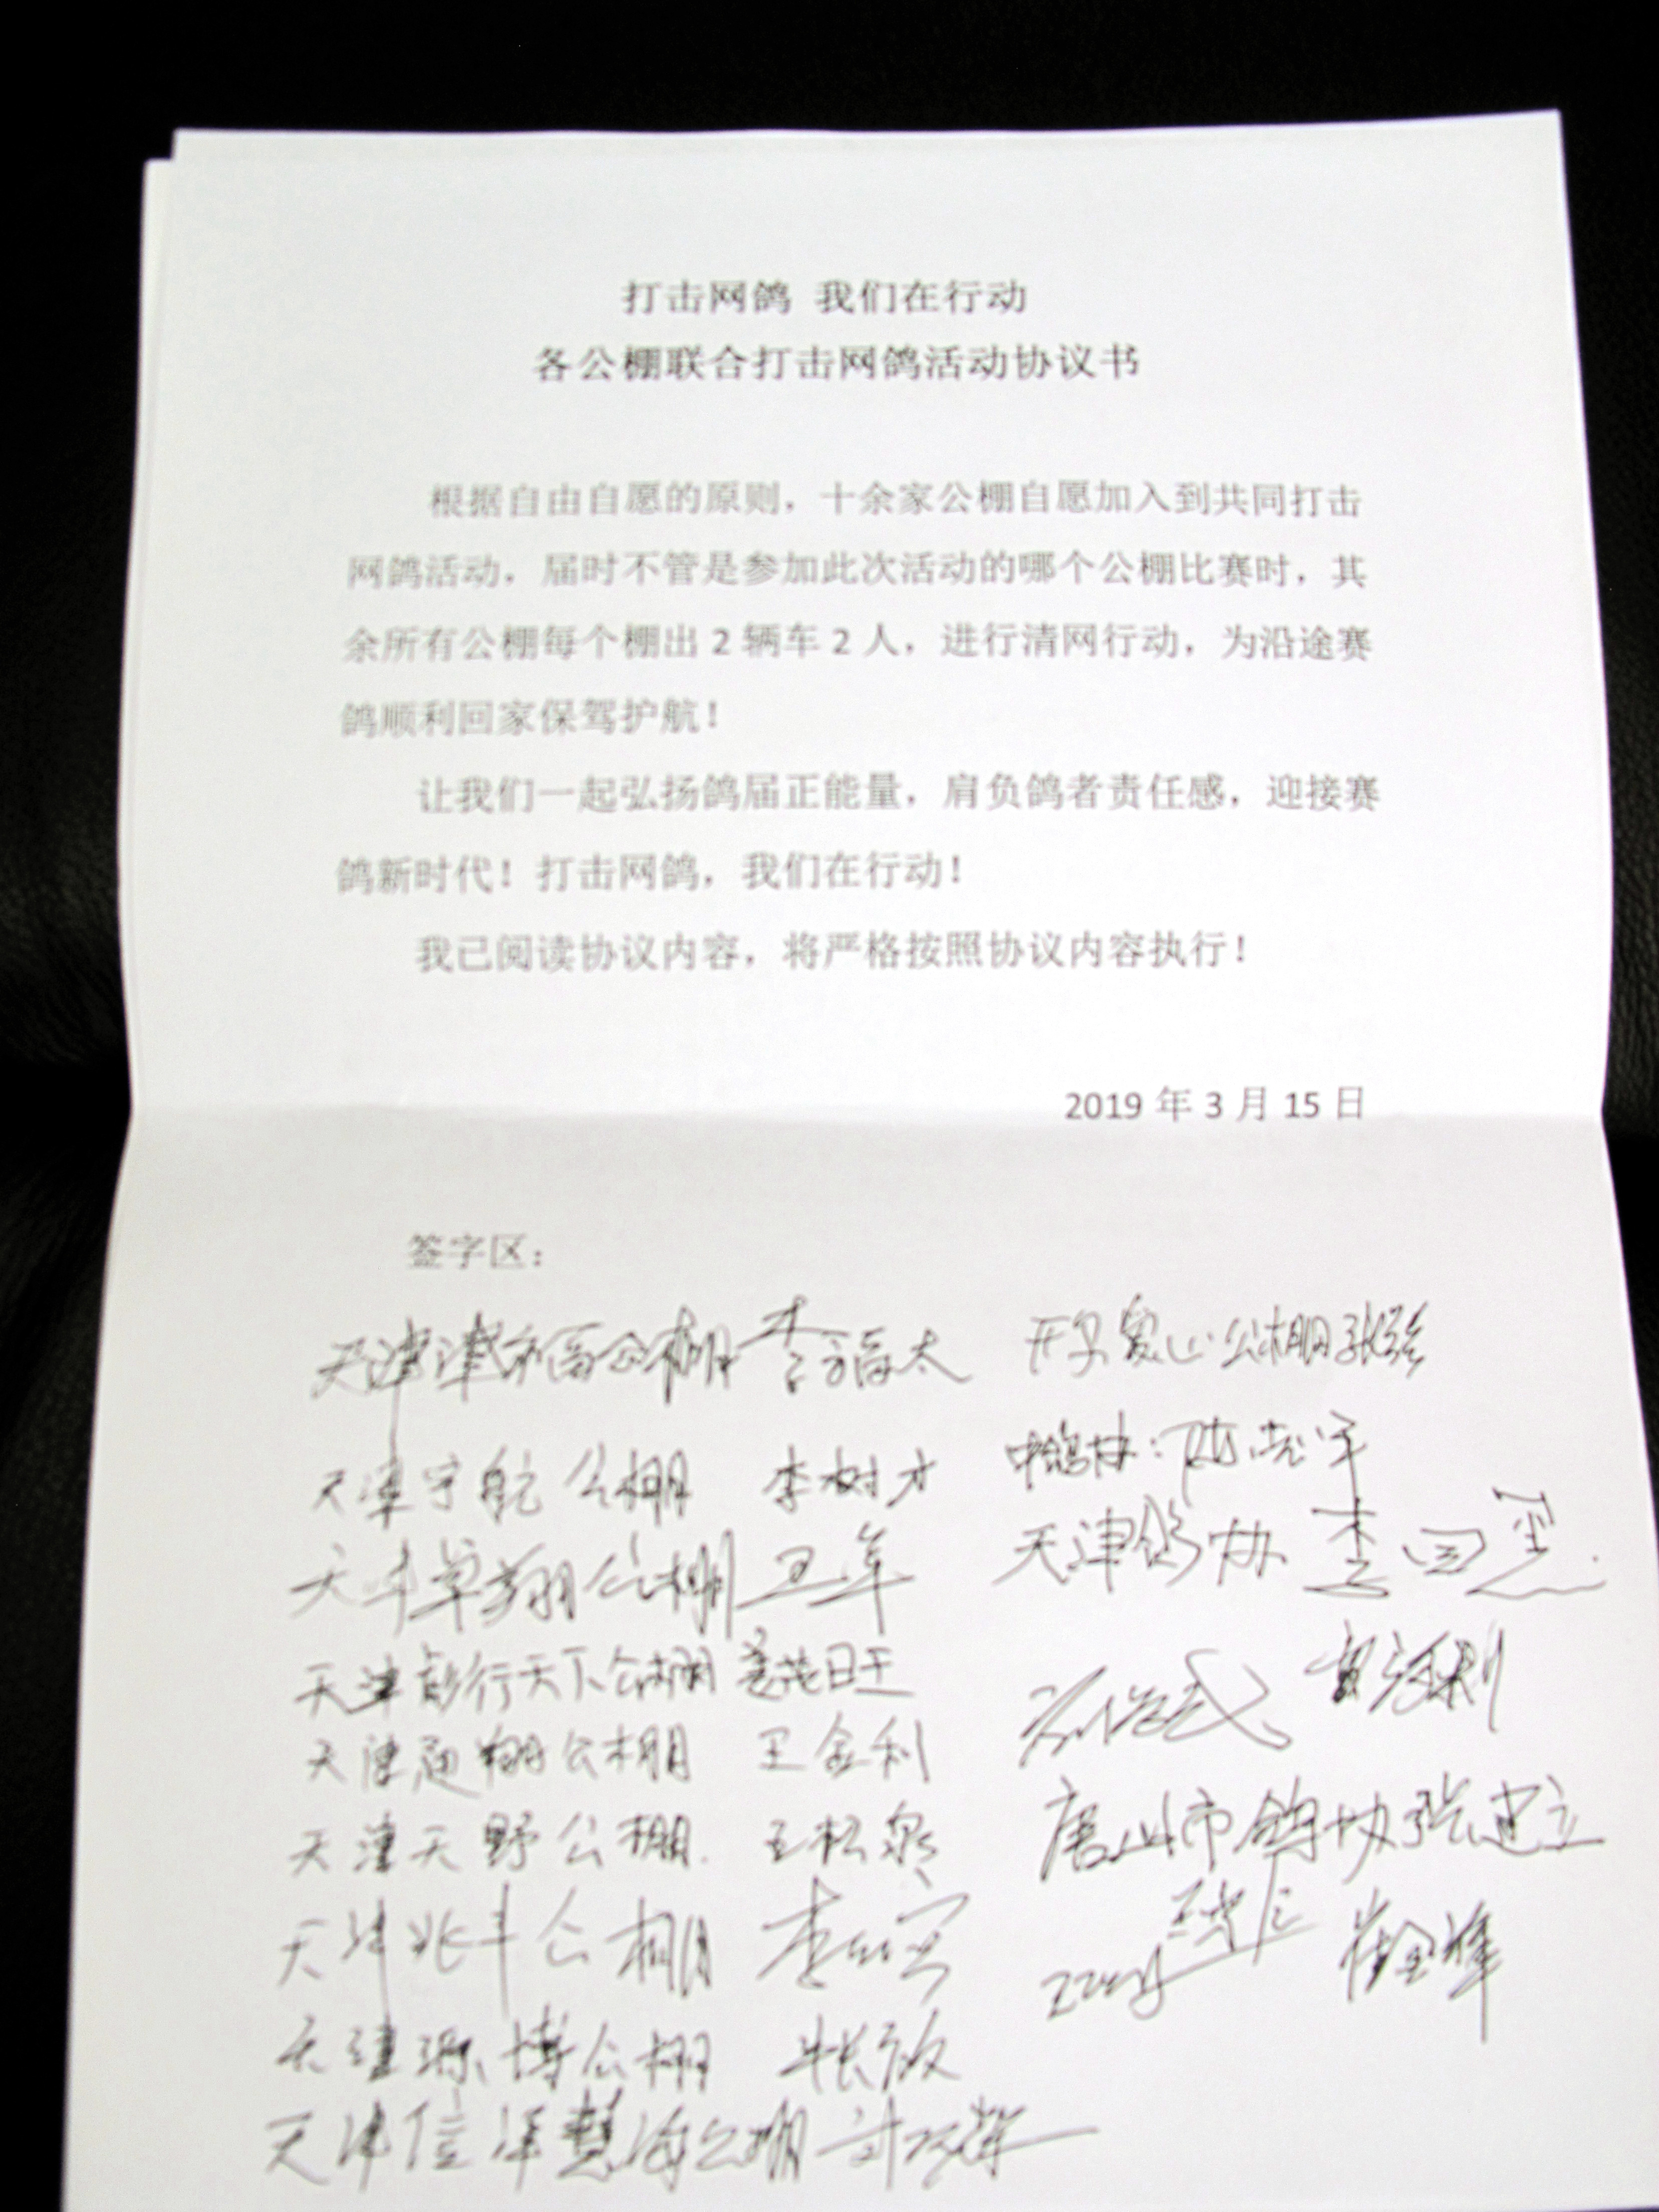 打击网鸽 我们在行动
各公棚联合打击网鸽活动协议书
根据自由自愿的原则，十余家公棚自愿加入到共同打击
网鸽活动，届时不管是参加此次活动的哪个公棚比赛时，其
余所有公棚每个棚出 2 辆车 2 人，进行清网行动，为沿途赛
鸽顺利回家保驾护航！
让我们一起弘扬鸽届正能量，肩负鸽者责任感，迎接赛
鸽新时代！打击网鸽，我们在行动！
我已阅读协议内容，将严格按照协议内容执行！
2019 年 3 月 15 日
签字区：
天津津 公棚 李福太
天津宇航公棚 李树才
天津 翔公棚 王军
天津 行天下公棚 姜茂旺
天津 翔公棚 王金利
天津天野公棚 王松泉
天津兆丰公棚 李
天津 博公棚 张放
天津信泽慧海公棚
公棚 张
中鸽协：陈
天津鸽协 李
唐山市鸽协 张建立
崔金峰